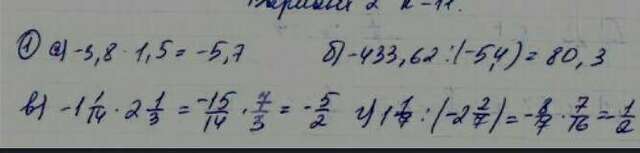 Вариант 2 К-11.
① а) -3,8 · 1,5 = -5,7 б) -433,62 : (-5,4) = 80,3
в) -1 1/14 · 2 1/3 = -15/14 · 7/3 = -5/2 г) 1 1/7 : (-2 2/7) = -8/7 · 7/16 = -1/2